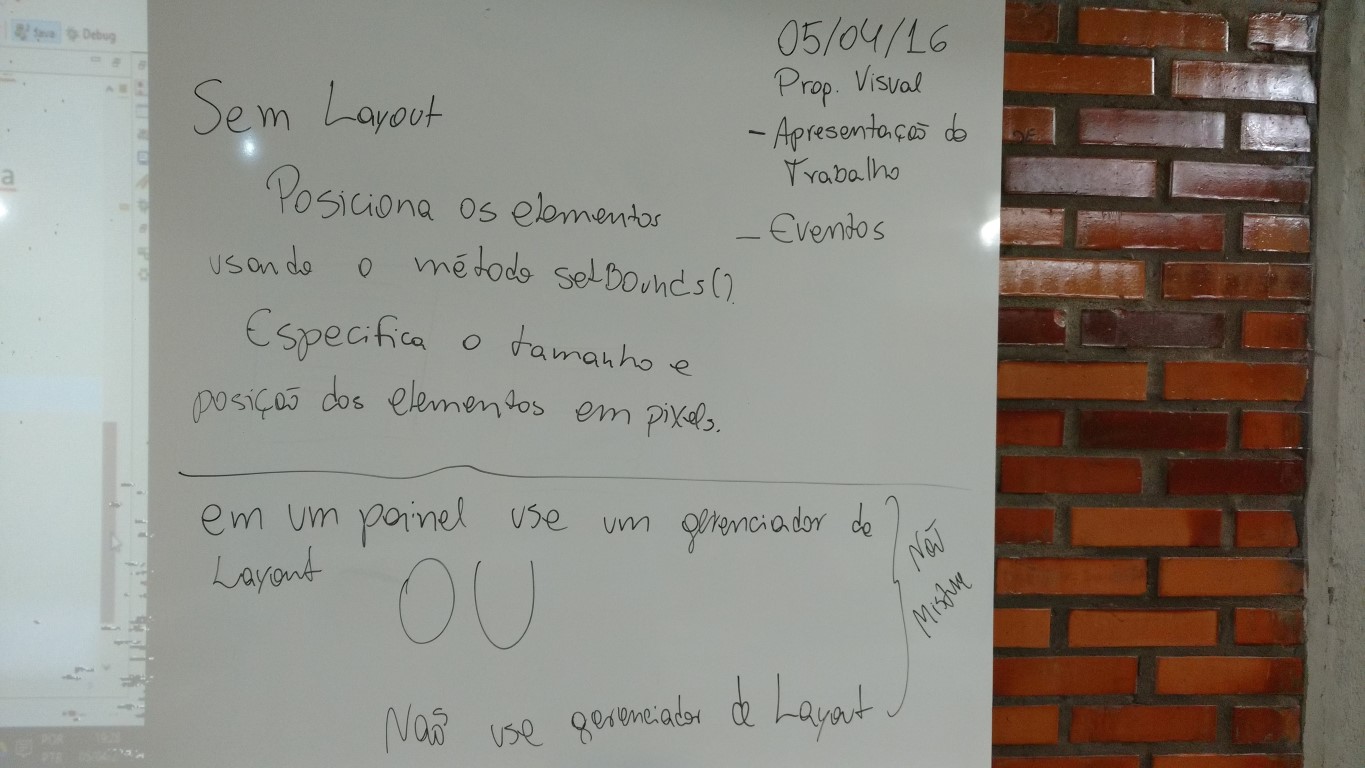 Java Debug
a
05/04/16
Prop. Visual
- Apresentação do
Trabalho
- Eventos
Sem Layout
Posiciona os elementos
usando o método setBounds().
Especifica o tamanho e
posição dos elementos em pixels.
em um painel use um gerenciador de
Layout
OU
Não use gerenciador de Layout
Não
Misture
POR